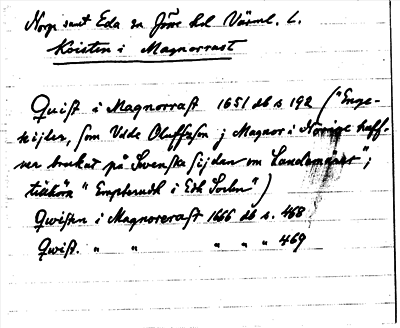 Norge samt Eda sn Jösse hd Värml. l.
Kvisten i Magnorrast
Quist i Magnorrast 1651 db s 192 ("Enge-
kijler, som Vdde Oluffzson j Magnor i Norige haff-
ver brukat på Swenska sijdan om Landemäret";
tillhöra "Empterudh i Edh Sochn")
Qwisten i Magnorerast 1666 db s. 468
Qwist. " " " " " 469